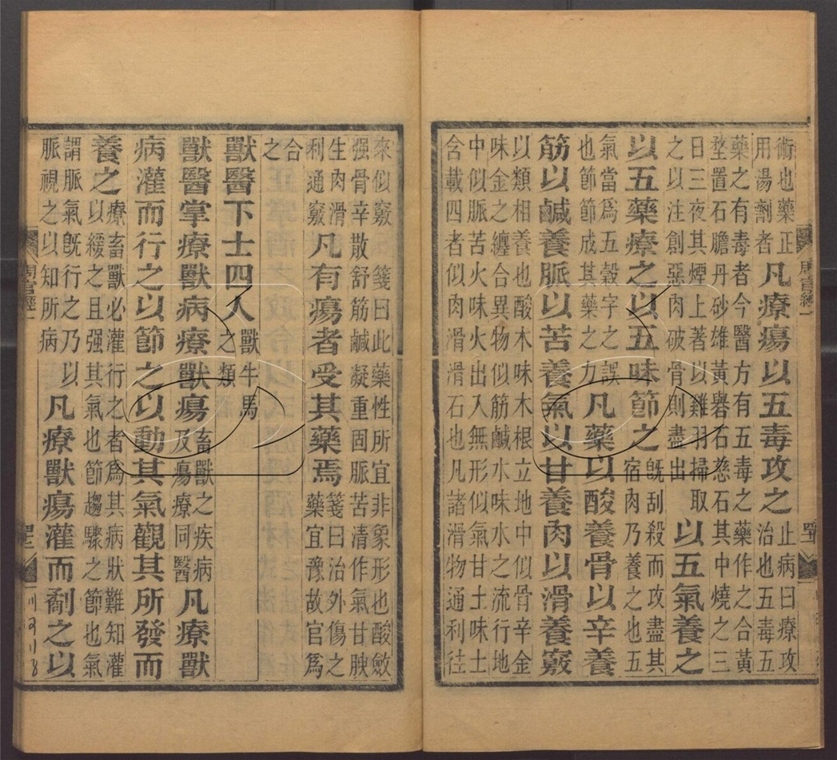 術也藥正
用湯劑者
凡療瘍以五毒攻之
止病曰療攻
治也五毒五
藥之有毒者今醫方有五毒之藥作之合黃
堥置石膽丹砂雄黃礜石慈石其中燒之三
日三夜其煙上著以雞羽掃取
之以注創惡肉破骨則盡出
以五氣養之
以五藥療之以五味節之
既刮殺而攻盡其
宿肉乃養之也五
氣當爲五穀字之誤
也節節成其藥之力
凡藥以酸養骨以辛養
筋以鹹養脈以苦養氣以甘養肉以滑養竅
以類相養也酸木味木根立地中似骨辛金
味金之纏合異物似筋鹹水味水之流行地
中似脈苦火味火出入無形似氣甘土味土
含載四者似肉滑滑石也凡諸滑物通利往
周官經一
來似竅 箋曰此藥性所宜非象形也酸斂
强骨辛散舒筋鹹凝重固脈苦清作氣甘腴
生肉滑
利通竅
凡有瘍者受其藥焉
箋曰治外傷之
藥宜豫故官爲
合
之
獸醫下士四人
獸牛馬
之類
獸醫掌療獸病療獸瘍
畜獸之疾病
及瘍療同醫
凡療獸
病灌而行之以節之以動其氣觀其所發而
養之
療畜獸必灌行之者爲其病狀難知灌
以緩之且强其氣也節趨驟之節也氣
謂脈氣既行之乃以
脈視之以知所病
凡療獸瘍灌而劀之以
周官經一